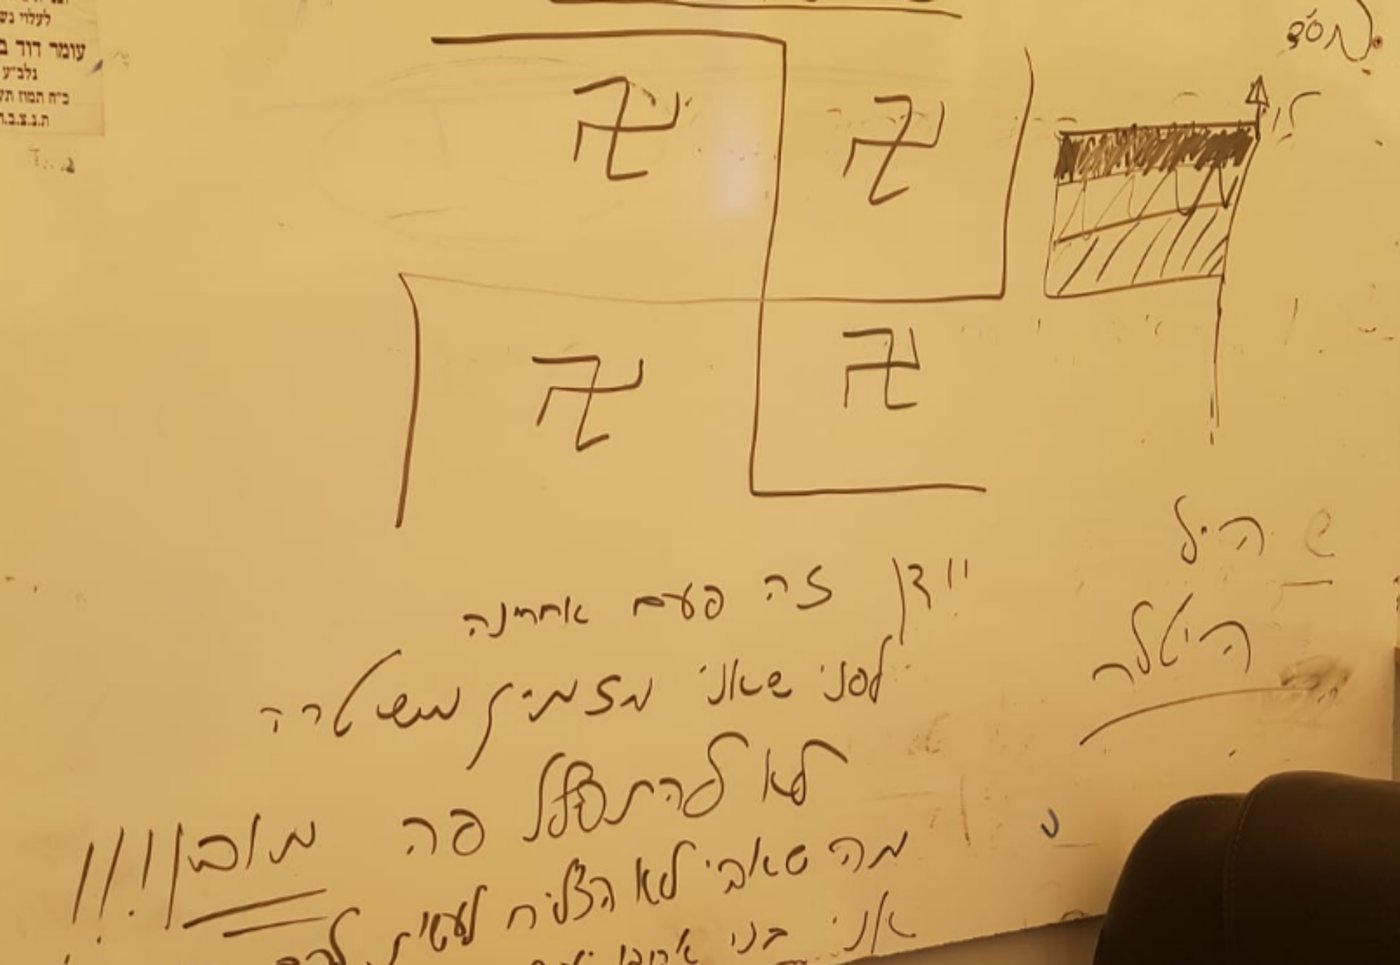 לעלוי נש
עומר דוד ב
נלב״ע
כ״ח תמוז תש
ת.נ.צ.ב.ה
היל
היטלר
יודן זה פעם אחרונה
לפני שאני מזמין משטרה
לא להתפלל פה מובן!!!
מה שאבי לא הצליח לעשות להם
אני בני